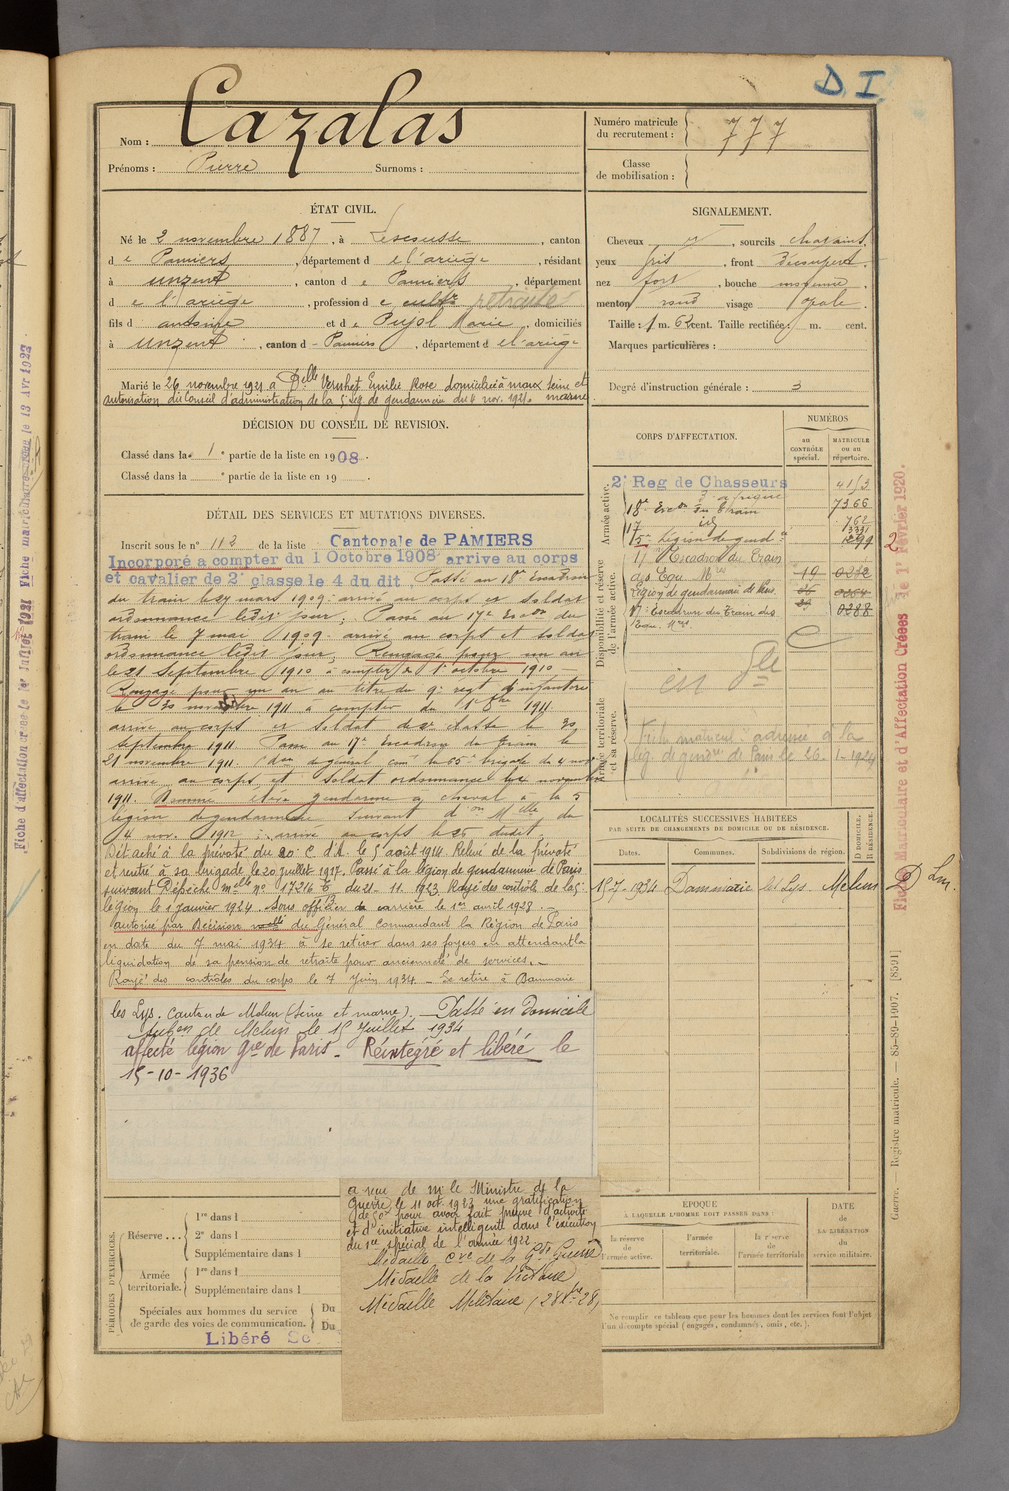 D. I
Nom : Cazalas
Prénoms : Pierre Surnoms :
Numéro matricule du recrutement : 777
Classe de mobilisation :
ÉTAT CIVIL.
Né le 2 novembre 1887, à Lescousse, canton
d e Pamiers, département d e l'ariège, résidant
à unzent, canton d e Pamiers, département
d e l'ariège, profession d e cultr retraité
fils d antoine et d e Pujol Marie, domiciliés
à unzent, canton d Pamiers, département d el'ariège
Marié le 26 novembre 1921 a Delle Vernhet Emilie Rose domiciliée à meaux seine et marne
autorisation du Conseil d'administration de la 5e Leg. de gendarmerie du 4 nov. 1921.
SIGNALEMENT.
Cheveux , sourcils chatains,
yeux gris, front découvert,
nez fort, bouche moyenne,
menton rond visage ovale.
Taille : 1 m. 62 cent. Taille rectifiée : m. cent.
Marques particulières :
Degré d'instruction générale : 3
DÉCISION DU CONSEIL DE REVISION.
Classé dans la 1e partie de la liste en 1908.
Classé dans la e partie de la liste en 19 .
DÉTAIL DES SERVICES ET MUTATIONS DIVERSES.
Inscrit sous le n° 112 de la liste Cantonale de PAMIERS
Incorporé a compter du 1 Octobre 1908 arrive au corps
et cavalier de 2e classe le 4 du dit. Passé au 18e Escadron
du train le 27 mars 1909. arrivé au corps et soldat
ordonnance ledit jour; Passé au 17e Escon du
train le 7 mai 1909. arrivé au corps et soldat
ordonnance ledit jour, Rengagé pour un an
le 21 Septembre 1910 à compter du 1er octobre 1910
Rengagé pour un an au titre du 9e regt d'infanterie
le 30 1911 a compter du 1er 8bre 1911
arrivé au corps et soldat de 2e classe le 30
septembre 1911. Passé au 17e Escadron du train le
21 novembre 1911. (don du général comt la 65e brigade du 4 nov
arrivé au corps et soldat ordonnance le novembre
1911. Nommé élève gendarme à cheval à la 5
légion de gendarmerie suivant don Mlle du
4 nov. 1912 : arrivé au corps le 25 dudit.
Détaché à la prévoté du 20e C. d'A. le 5 août 1914. Relevé de la prévoté
et rentré à sa brigade le 20 juillet 1917. Passé à la légion de gendarmerie de Paris
suivant Dépêche melle n° 17216 du 21-11.1923 Rayé des contrôles de la 5e
légion le 1 janvier 1924. Sous officier de carrière le 1er avril 1928.
autorisé par Décision du Général Commandant la Région de Paris
en date du 7 mai 1934 à se retirer dans ses foyers en attendant la
liquidation de sa pension de retraite pour ancienneté de services.
Rayé des contrôles du corps le 7 Juin 1934. Se retire à Dammarie
les Lys. Canton de Melun (seine et marne). Passé en Domicile
subon de Melun le 15 Juillet 1934
affecté légion gie de Paris. Réintégré et libéré le
15-10-1936
CORPS D'AFFECTATION.
NUMÉROS
au CONTRÔLE spécial.
MATRICULE ou au répertoire.
Armée active.
2e Reg de Chasseurs 4153
d'afrique
18e Escon du train 7366
17 id 762
15e Légion de gend.
Disponibilité et réserve de l'armée active.
17e Escadron du Train
des Equ. Mres 19 0212
Légion de gendarmerie de Paris
17e Escadron du Train des 0288
Equ. Mres
en Dle
Armée territoriale et sa réserve.
Fiche matricule adressée à la
lég. de gendrie de Paris le 26-1-1924
LOCALITÉS SUCCESSIVES HABITÉES
PAR SUITE DE CHANGEMENTS DE DOMICILE OU DE RÉSIDENCE.
Dates. Communes. Subdivisions de région. D DOMICILE. R RÉSIDENCE.
15-7-1934 Dammarie les Lys. Melun D Lm.
a reçu de Mr le Ministre de la
Guerre, le 11 oct. 1923 une gratification
de 50f pour avoir fait preuve d'activité
et d'initiative intelligente dans l'exécution
du Sce spécial de l'année 1922
Médaille Cve de la Gde Guerre
Médaille de la Victoire
Médaille Militaire (28 Xbre 28)
PÉRIODES D'EXERCICES.
Réserve ... 1re dans l
2e dans l
Supplémentaire dans l
Armée territoriale. 1re dans l
Supplémentaire dans l
Spéciales aux hommes du service de garde des voies de communication. Du
Du
Libéré
ÉPOQUE
À LAQUELLE L'HOMME DOIT PASSER DANS :
la réserve de l'armée active.
l'armée territoriale.
la réserve de l'armée territoriale
DATE de LA LIBÉRATION du service militaire.
Ne remplir ce tableau que pour les hommes dont les services font l'objet
d'un décompte spécial (engagés, condamnés, omis, etc.).
Fiche Matriculaire et d'Affectation Créées le 1er Février 1920.
Guerre. Registre matricule. — 85-89-1907. [8591]